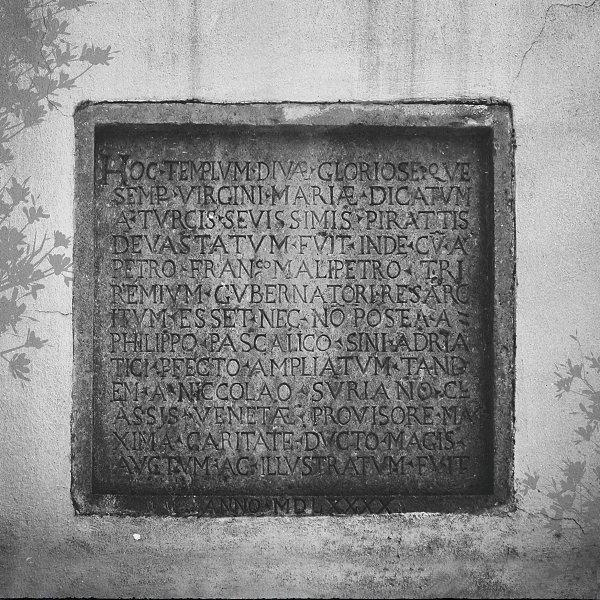 HOC·TEMPLVM·DIVÆ·GLORIOSE·QVE
SEMP·VIRGINI·MARIÆ·DICATVM
A·TVRCIS·SEVISSIMIS·PIRATTIS
DEVASTATVM·FVIT·INDE·CV̄·A
PETRO·FRANCO·MALIPETRO·TRI
REMIVM·GVBERNATORI·RESARC
ITVM·ESSET·NEC·NO·POSTEA·A
PHILIPPO·PASCALICO·SINI·ADRIA
TICI·PFECTO·AMPLIATVM·TAND
EM·A·NICCOLAO·SVRIANO·CL
ASSIS·VENETÆ·PROVISORE·MA
XIMA·CARITATE·DVCTO·MAGIS
AVCTVM·AC·ILLVSTRATVM·FVIT
ANNO·MDLXXXX